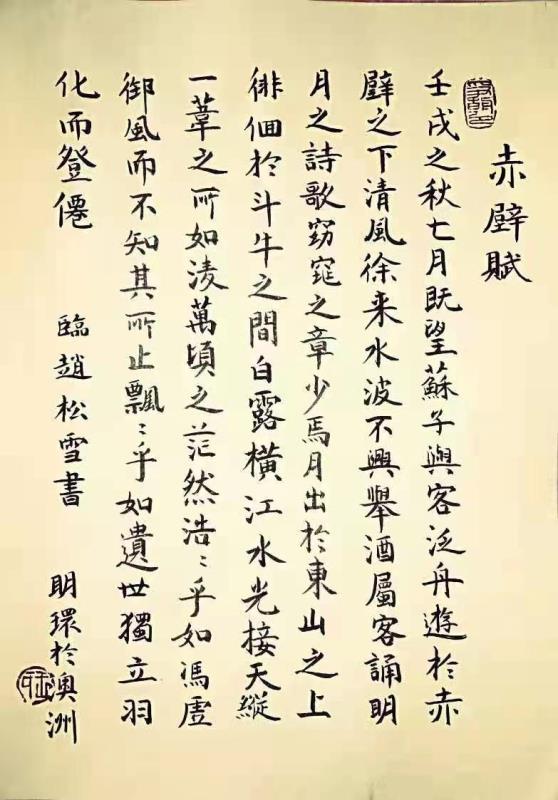 赤壁賦
壬戌之秋七月既望蘇子與客泛舟遊於赤
壁之下清風徐来水波不興舉酒屬客誦明
月之詩歌窈窕之章少焉月出於東山之上
徘佪於斗牛之間白露横江水光接天縱
一葦之所如淩萬頃之茫然浩〻乎如馮虛
御風而不知其所止飄〻乎如遺世獨立羽
化而登僊
臨趙松雪書
明環於澳洲